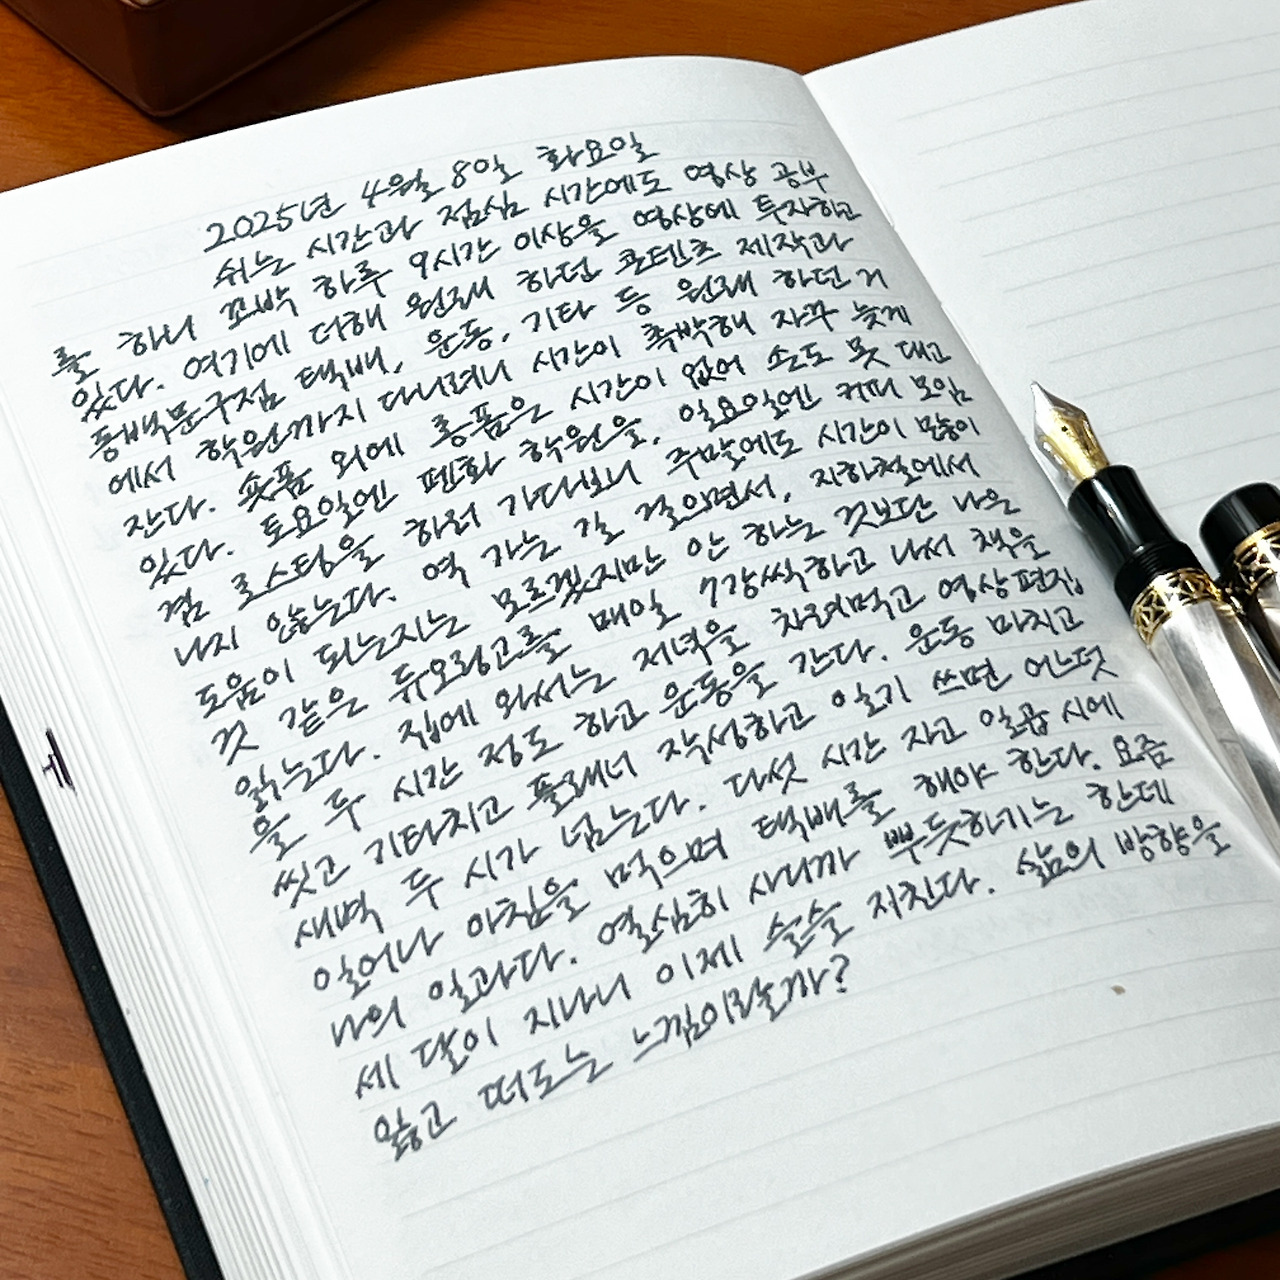 2025년 4월 8일 화요일
쉬는 시간과 점심 시간에도 영상 공부
를 하니 꼬박 하루 9시간 이상을 영상에 투자하고
있다. 여기에 더해 원래 하던 콘텐츠 제작과
동백문구점 택배, 운동, 기타 등 원래 하던 거
에서 학원까지 다니려니 시간이 촉박해 자꾸 늦게
잔다. 숏폼 외에 롱폼은 시간이 없어 손도 못 대고
있다. 토요일엔 펜화 학원을, 일요일엔 커피 모임
겸 로스팅을 하러 가다보니 주말에도 시간이 많이
나지 않는다. 역 가는 길 걸으면서, 지하철에서
도움이 되는지는 모르겠지만 안 하는 것보단 나은
것 같은 듀오링고를 매일 7강씩하고 나서 책을
읽는다. 집에 와서는 저녁을 차려먹고 영상편집
을 두 시간 정도 하고 운동을 간다. 운동 마치고
씻고 기타치고 플래너 작성하고 일기 쓰면 어느덧
새벽 두 시가 넘는다. 다섯 시간 자고 일곱 시에
일어나 아침을 먹으며 택배를 해야 한다. 요즘
나의 일과다. 열심히 사니까 뿌듯하기는 한데
세 달이 지나니 이제 슬슬 지친다. 삶의 방향을
잃고 떠도는 느낌이랄까?